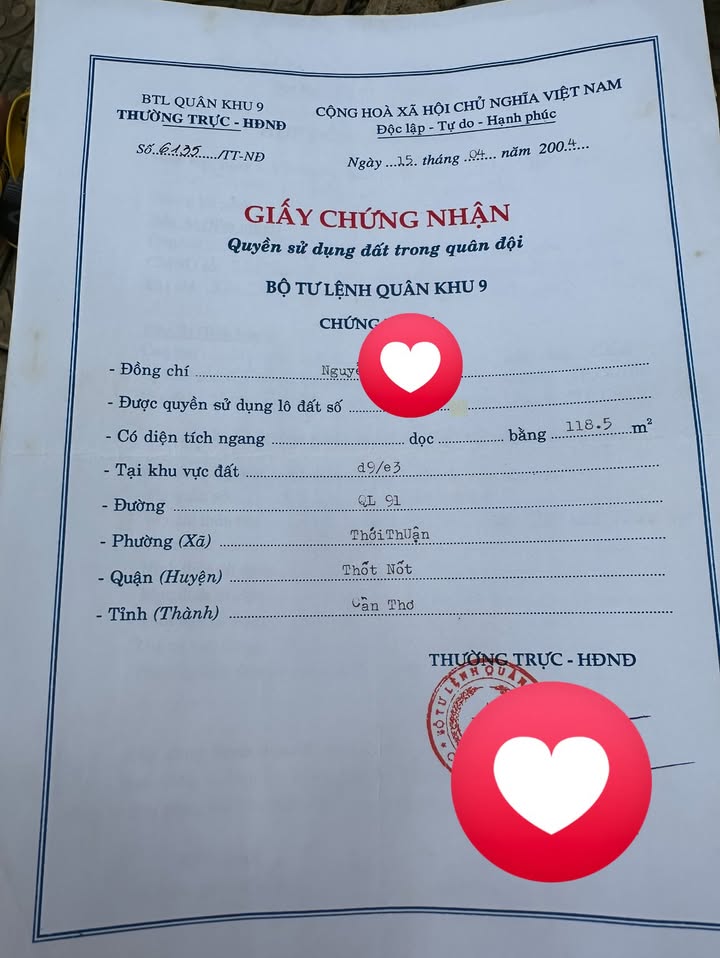 BTL QUÂN KHU 9
THƯỜNG TRỰC - HĐNĐ
Số...6135....../TT-NĐ
CỘNG HOÀ XÃ HỘI CHỦ NGHĨA VIỆT NAM
Độc lập - Tự do - Hạnh phúc
Ngày ...15. tháng .04... năm 2004...
GIẤY CHỨNG NHẬN
Quyền sử dụng đất trong quân đội
BỘ TƯ LỆNH QUÂN KHU 9
CHỨNG
- Đồng chí
- Được quyền sử dụng lô đất số
- Có diện tích ngang ........ dọc ........ bằng 118.5 m²
- Tại khu vực đất d9/e3
- Đường QL 91
- Phường (Xã) ThớiThUận
- Quận (Huyện) Thốt Nốt
- Tỉnh (Thành) Cần Thơ
THƯỜNG TRỰC - HĐNĐ
BỘ TƯ LỆNH QUÂN